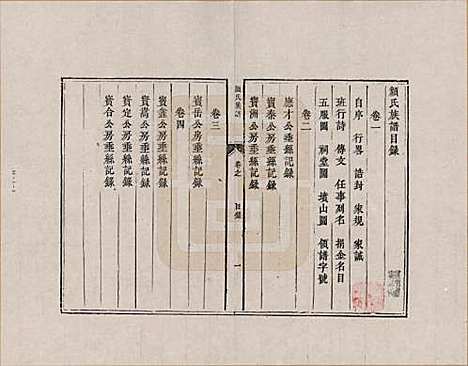 顏氏族譜目錄
卷一
自序 行畧 誥封 家規 家誡
班行詩 傳文 任事列名 捐金名目
五服圖 祠堂圖 墳山圖 領譜字號
卷二
應才公垂縣記錄
寶泰公房垂縣記錄
寶洲公房垂縣記錄
顏氏族譜 卷之 目錄 一
卷三
寶岳公房垂縣記錄
卷四
寶鑫公房垂縣記錄
寶嵩公房垂縣記錄
寶定公房垂縣記錄
寶合公房垂縣記錄